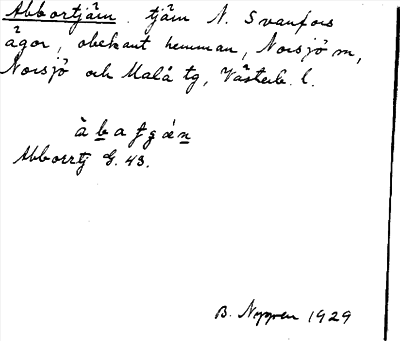 Abbortjärn. tjärn N. Svanfors
ägor, obekant hemman, Norsjö sn,
Norsjö och Malå tg, Västerb. l.
àbaʈʂǽn
Abborrtj G. 43.
B. 1929